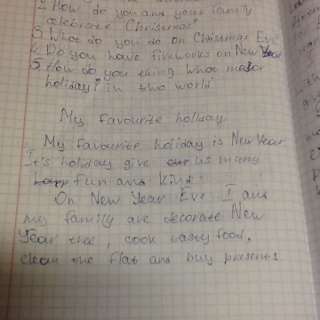 2 How do you and your family
celebrate Christmas?
3 What do you do on Christmas Eve
4 Do you have fireworks on New Year
5 How do you thing what major
holiday? in the world
My favourite holiday
My favourite holiday is New Year
It's holiday give us many
fun and kind.
On New Year Eve I and
my family are decorate New
Year tree, cook tasty food,
clean the flat and buy presents